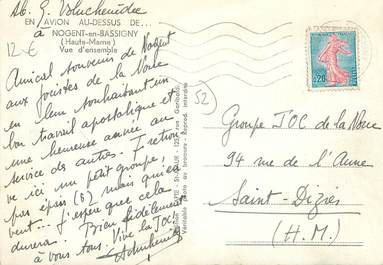 EN AVION AU-DESSUS DE...
à NOGENT-en-BASSIGNY
(Haute-Marne)
Vue d'ensemble
12 €
Amical souvenir de Nogent
aux jocistes de la Noue
en leur souhaitant un
bon travail apostolique et
une heureuse année au
service des autres. Il retrou
ve ici un petit groupe,
pas épais (6) mais qui en
veut... J'espère que cela
durera. Bien fidèlement
à vous tous. Vive la JOC.
52
0,20
Groupe JOC de la Noue
94 rue de l'Aune
Saint-Dizier
(H.M.)
Véritable photo au bromure - Reprod. interdite